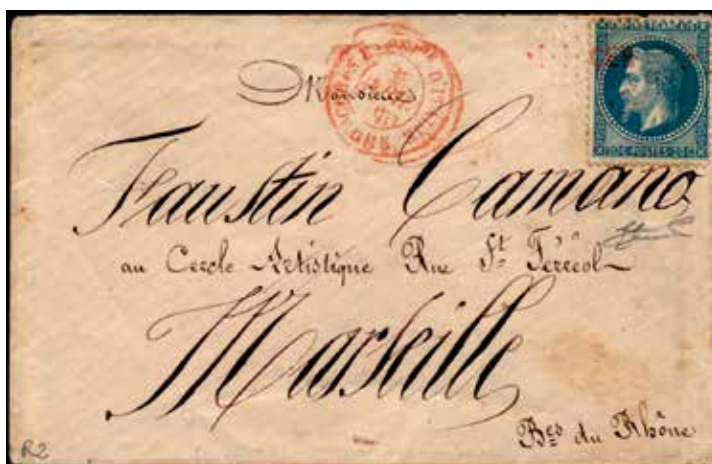 Monsieur
Faustin Camano
au Cercle Artistique Rue St. Ferréol
Marseille
Bes du Rhône
20C POSTES 20C
R2